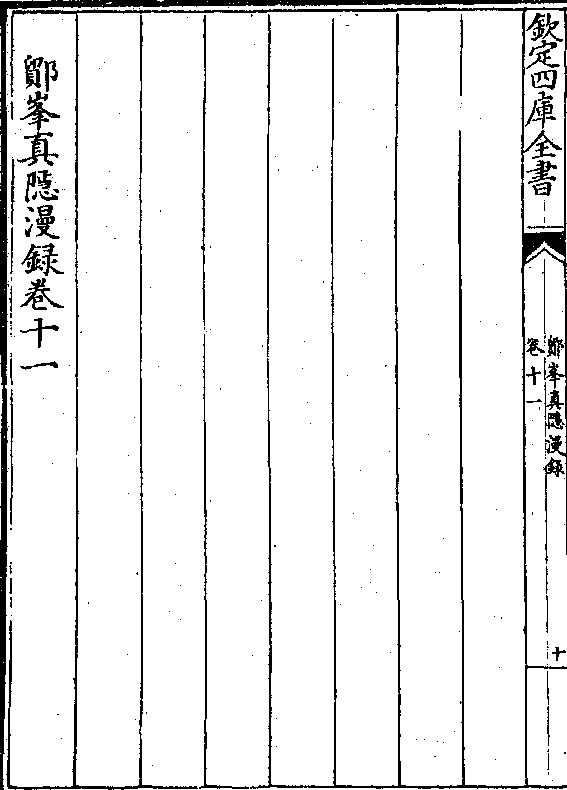 欽定四庫全書
鄮峯真隱漫録
卷十一
十
鄮峯真隱漫録卷十一